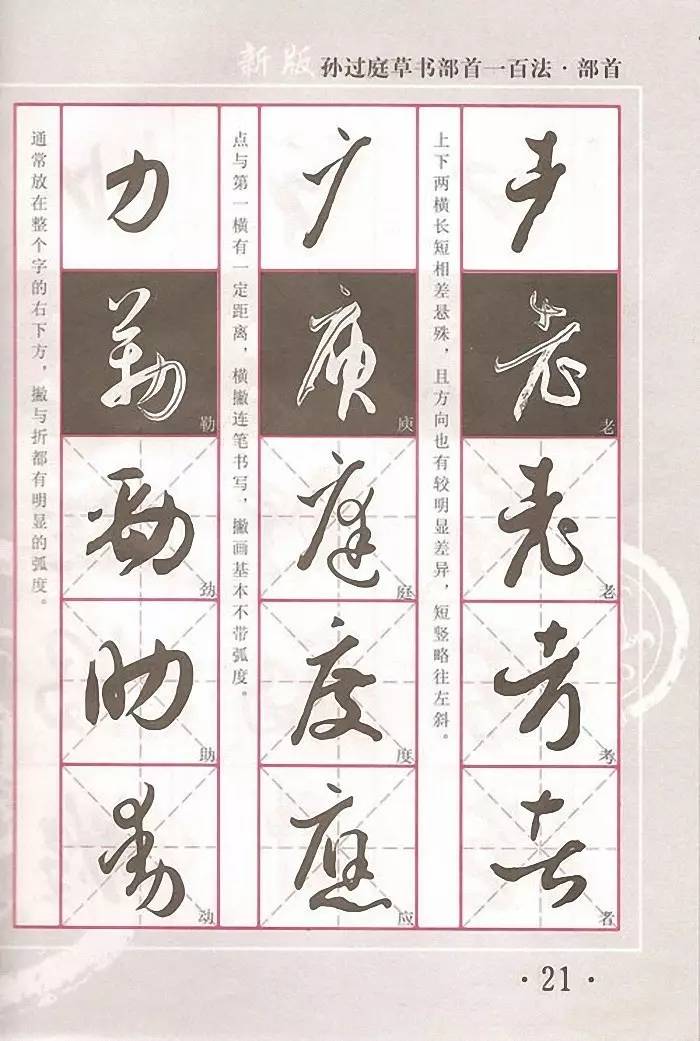 新版 孙过庭草书部首一百法·部首
耂
老
老
老
老
考
考
者
者
上下两横长短相差悬殊，且方向也有较明显差异，短竖略往左斜。
广
庾
庾
庭
庭
度
度
應
应
点与第一横有一定距离，横撇连笔书写，撇画基本不带弧度。
力
勒
勒
劲
劲
助
助
動
动
通常放在整个字的右下方，撇与折都有明显的弧度。
·21·